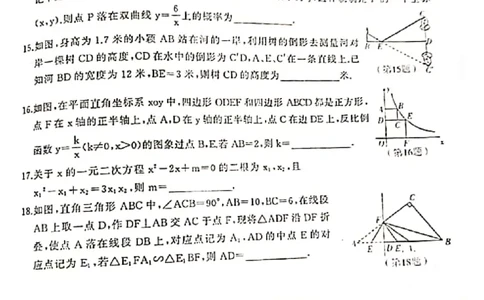 (x,y),则点 P 落在双曲线 y=6/x 上的概率为
15.如图,身高为 1.7 米的小颖 AB 站在河的一岸,利用树的倒影去测量河对
岸一棵树 CD 的高度,CD 在水中的倒影为 C'D,A、E、C'在一条直线上,已
知河 BD 的宽度为 12 米,BE=3 米,则树 CD 的高度为 米.
(第15题)
16.如图,在平面直角坐标系 xoy 中,四边形 ODEF 和四边形 ABCD 都是正方形,
点 F 在 x 轴的正半轴上,点 A,D 在 y 轴的正半轴上,点 C 在边 DE 上,反比例
函数 y=k/x(k≠0,x>0)的图象过点 B,E.若 AB=2,则 k= .
(第16题)
17.关于 x 的一元二次方程 x²-2x+m=0 的二根为 x₁,x₂,且
x₁²-x₁+x₂=3x₁x₂,则 m= .
18.如图,直角三角形 ABC 中,∠ACB=90°,AB=10,BC=6,在线段
AB 上取一点 D,作 DF⊥AB 交 AC 于点 F,现将△ADF 沿 DF 折
叠,使点 A 落在线段 DB 上,对应点记为 A₁,AD 的中点 E 的对
应点记为 E₁,若△E₁FA₁∽△E₁BF,则 AD= .
(第18题)